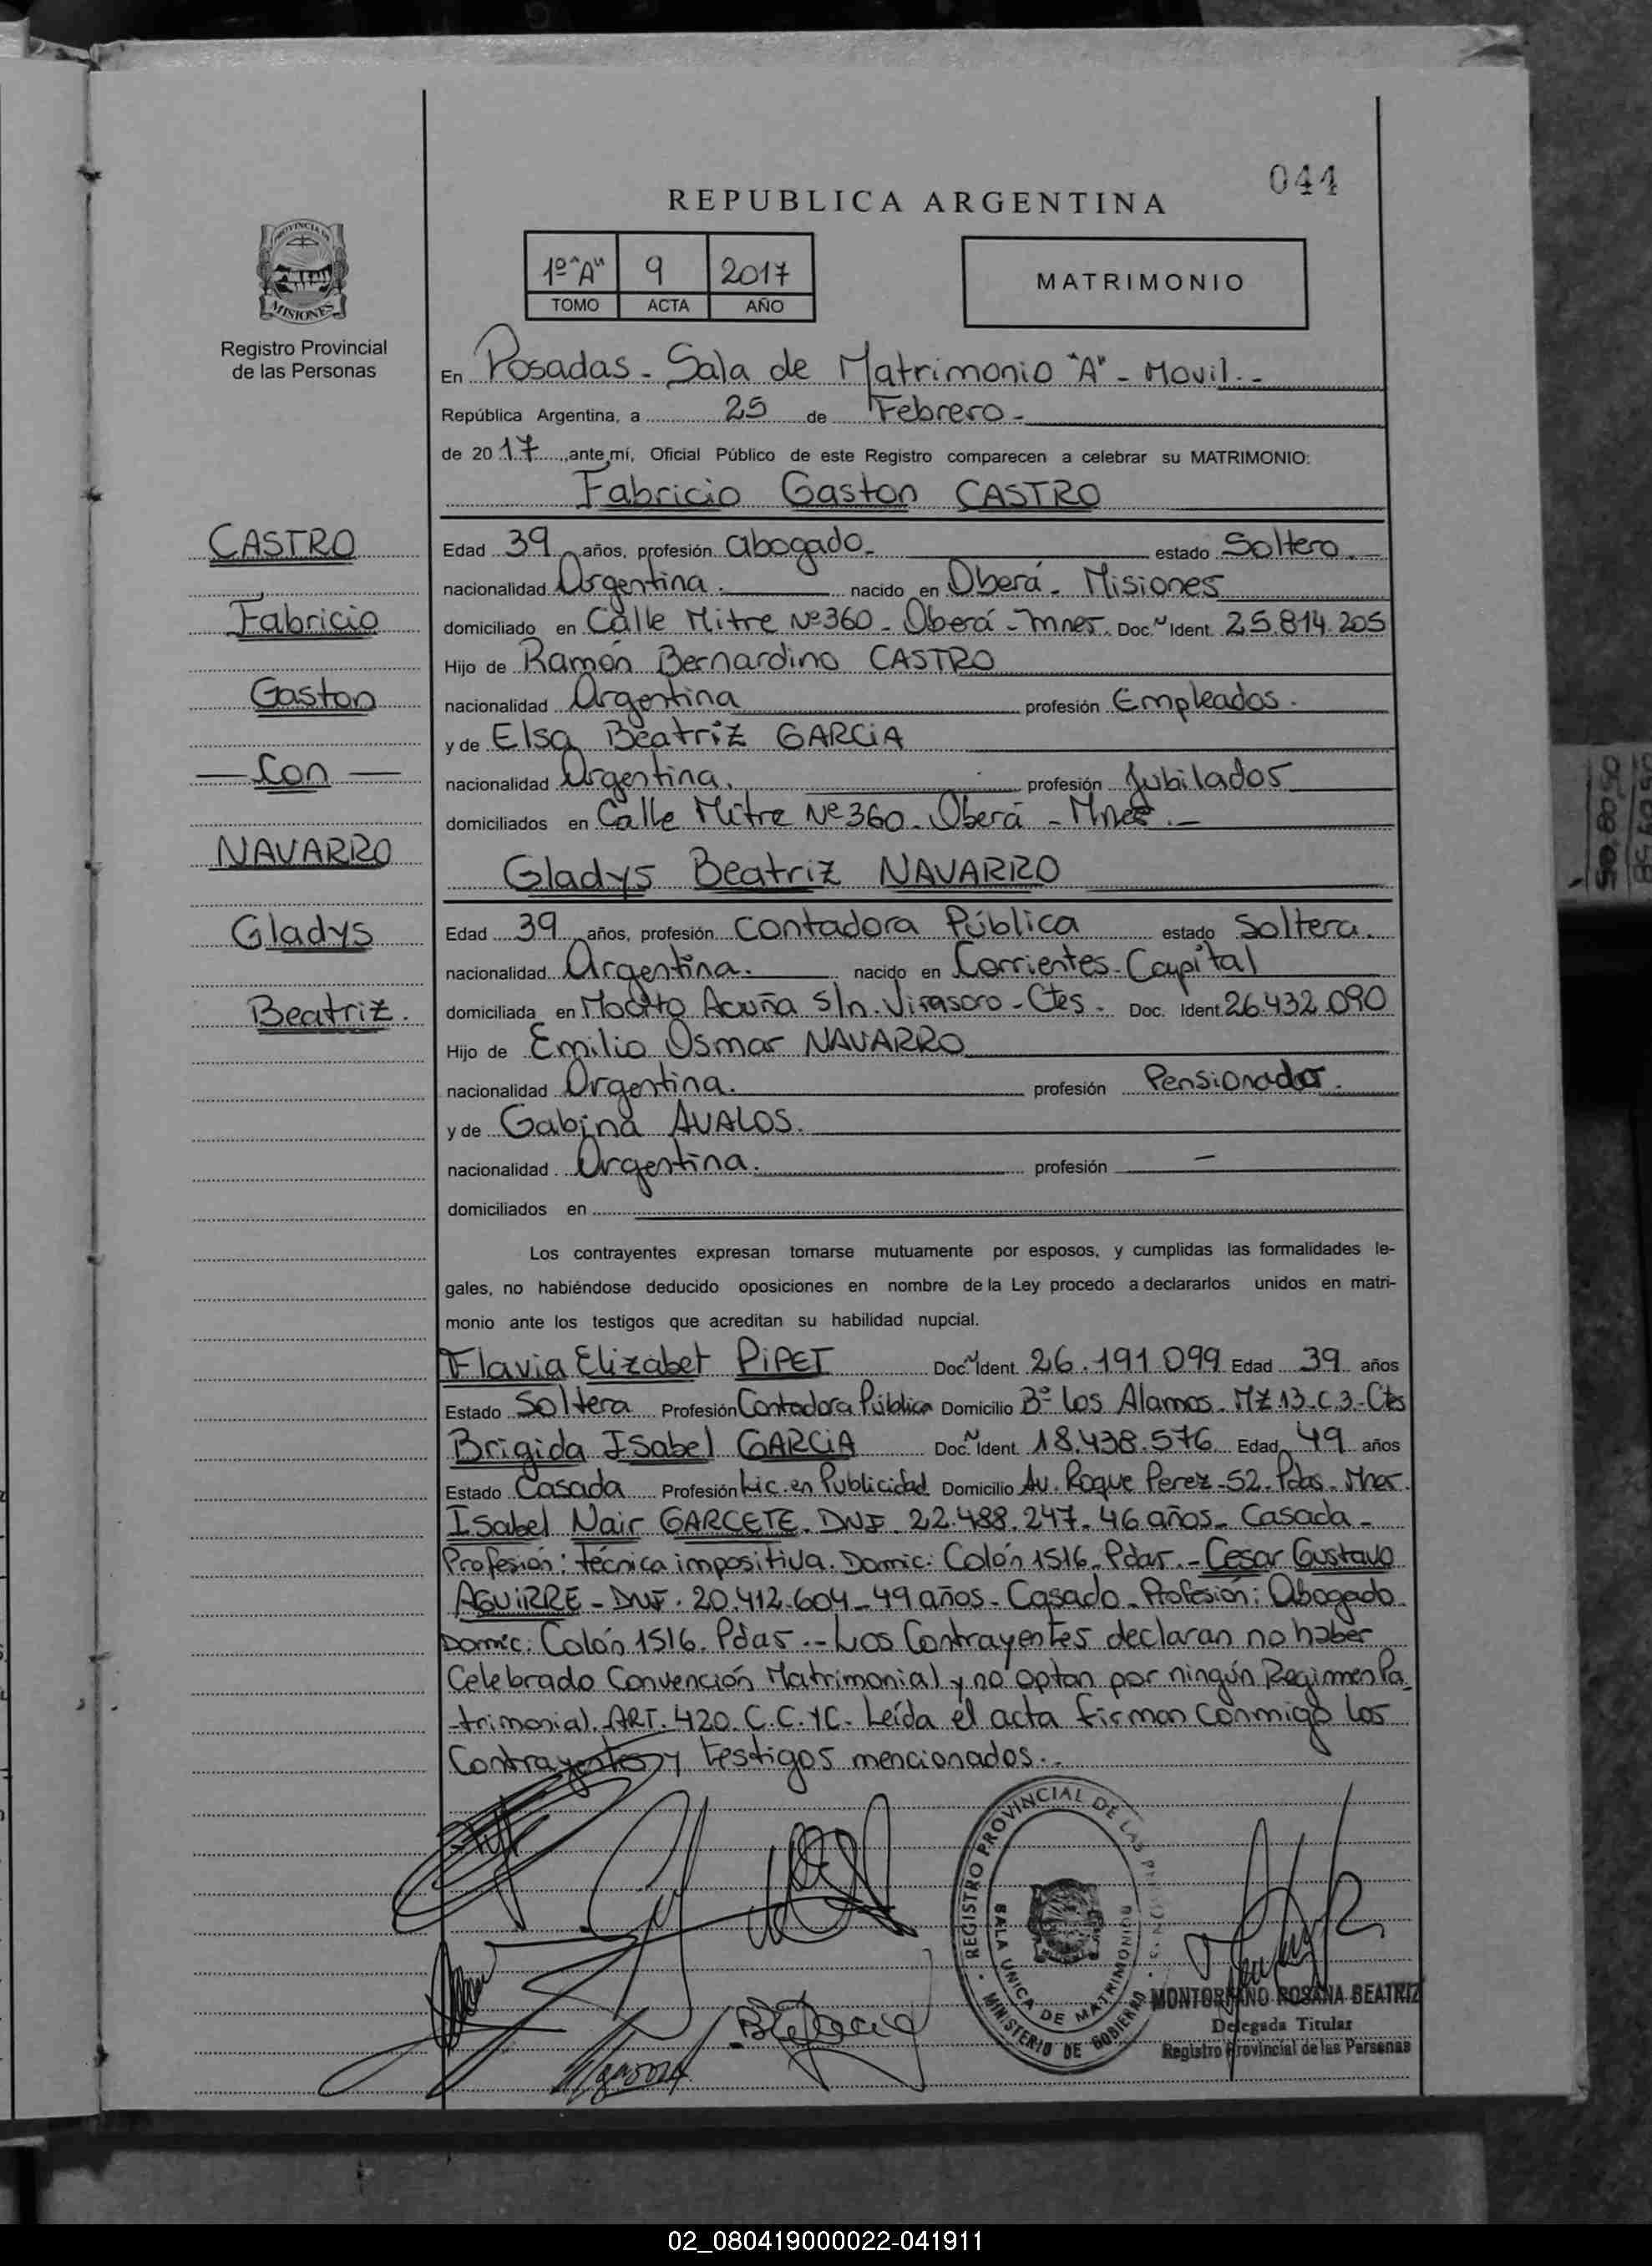 044
REPUBLICA ARGENTINA
PROVINCIA DE
MISIONES
Registro Provincial
de las Personas
1º "A" 9 2017
TOMO ACTA AÑO
MATRIMONIO
En Posadas - Sala de Matrimonio "A" - Movil.-
República Argentina, a 25 de Febrero -
de 2017, ante mí, Oficial Público de este Registro comparecen a celebrar su MATRIMONIO:
Fabricio Gaston CASTRO
CASTRO
Fabricio
Gaston
— Con —
NAVARRO
Gladys
Beatriz.
Edad 39 años, profesión abogado.- estado Soltero.-
nacionalidad Argentina. nacido en Oberá - Misiones
domiciliado en Calle Mitre Nº 360 - Oberá - Mnes. Doc. N Ident. 25.814.205
Hijo de Ramón Bernardino CASTRO
nacionalidad Argentina profesión Empleados.
y de Elsa Beatriz GARCIA
nacionalidad Argentina. profesión Jubilados
domiciliados en Calle Mitre Nº 360 - Oberá - Mnes.-
Gladys Beatriz NAVARRO
Edad 39 años, profesión Contadora Pública estado Soltera.
nacionalidad Argentina. nacido en Corrientes - Capital
domiciliada en Acuña S/n. Virasoro - Ctes - Doc. Ident. 26.432.090
Hijo de Emilio Osmar NAVARRO
nacionalidad Argentina. profesión Pensionado.
y de Gabina AVALOS.
nacionalidad Argentina. profesión –
domiciliados en
Los contrayentes expresan tomarse mutuamente por esposos, y cumplidas las formalidades le-
gales, no habiéndose deducido oposiciones en nombre de la Ley procedo a declararlos unidos en matri-
monio ante los testigos que acreditan su habilidad nupcial.
Flavia Elizabet PIPET Doc. N Ident. 26.191.099 Edad 39 años
Estado Soltera Profesión Contadora Pública Domicilio Bº Los Alamos - MZ 13 - C.3 - Ctes
Brigida Isabel GARCIA Doc. N Ident. 18.438.576 Edad 49 años
Estado Casada Profesión Lic. en Publicidad Domicilio Av. Roque Perez - 52 - Pdas - Mnes.
Isabel Nair GARCETE. DNI. 22.488.247. 46 años - Casada -
Profesión: técnica impositiva. Domic: Colón 1516 - Pdas. - Cesar Gustavo
AGUIRRE - DNI. 20.412.604 - 49 años - Casado - Profesión: Abogado
Domic: Colón 1516. Pdas .- Los Contrayentes declaran no haber
Celebrado Convención Matrimonial y no optan por ningún Regimen Pa
-trimonial. ART. 420. C.C.YC. Leída el acta firman conmigo los
Contrayentes y testigos mencionados.-
REGISTRO PROVINCIAL DE LAS PERSONAS
SALA UNICA DE MATRIMONIO
MINISTERIO DE GOBIERNO
ROSANA BEATRIZ
Delegada Titular
Registro Provincial de las Personas
02_080419000022-041911